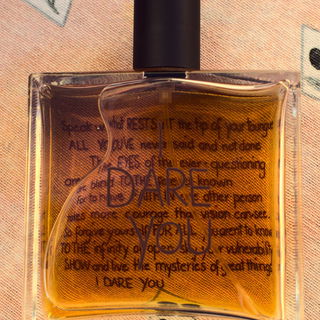 Speak what RESTS at the tip of your tongue
ALL YOU'VE never said and not done
The EYES of the ever questioning
are blind TO THE known
for to love other person
takes more courage than vision can see.
So forgive yourself FOR ALL you aren't to know
TO THE infinity of vulnerability
SHOW and live the mysteries of real things
I DARE YOU
DARE
YOU